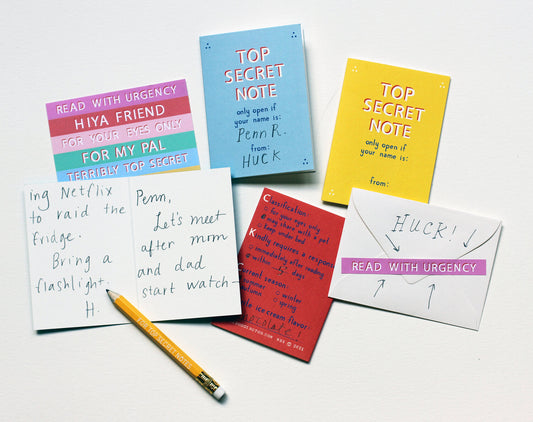 READ WITH URGENCY
HIYA FRIEND
FOR YOUR EYES ONLY
FOR MY PAL
TERRIBLY TOP SECRET
TOP
SECRET
NOTE
only open if
your name is:
Penn R.
from:
HUCK
TOP
SECRET
NOTE
only open if
your name is:
from:
ing Netflix
to raid the
fridge.
Bring a
flashlight.
H.
Penn,
Let's meet
after mom
and dad
start watch-
Classification:
for your eyes only
may share with a pal
keep under bed
Kindly requires a response
immediately after reading
within days
Current season:
summer winter
autumn spring
ice cream flavor:
chocolate!
HUCK!
READ WITH URGENCY